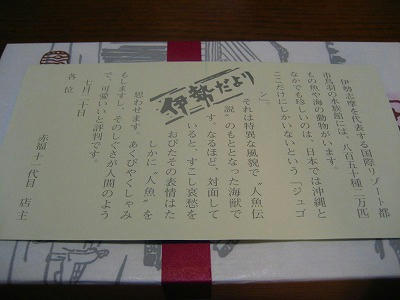 伊勢志摩を代表する国際リゾート都
市鳥羽の水族館には、八百五十種二万匹
もの魚や海の動物がいます。
なかでも珍しいのは、日本では沖縄と
ここだけにしかいないという「ジュゴ
ン」。
伊勢だより
それは特異な風貌で〝人魚伝
説〟のもととなった海獣で
す。なるほど、対面して
いると、すこし哀愁を
おびたその表情はた
しかに〝人魚〟を
思わせます。あくびやくしゃみ
もしますし、そのしぐさが人間のよう
で、可愛いいと評判です。
七月二十日
赤福十一代目 店主
各位